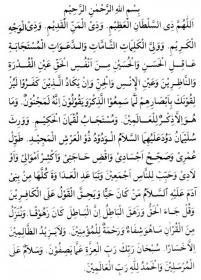 بِسْمِ اللهِ الرَّحْمٰنِ الرَّحِيْمِ
اَللّٰهُمَّ ذِي السُّلْطَانِ الْعَظِيْمِ. وَذِي الْمَنِّ الْقَدِيْمِ. وَذِي الْوَجْهِ
الْكَرِيْمِ. وَوَلِيِّ الْكَلِمَاتِ التَّامَّاتِ وَالدَّعَوَاتِ الْمُسْتَجَابَةِ
عَاقِلِ الْحَسَنِ وَالْحُسَيْنِ مِنْ اَنْفُسِ الْحَقِّ عَيْنِ الْقُدْرَةِ
وَالنَّاظِرِيْنَ وَعَيْنِ الْاِنْسِ وَالْجِنِّ وَاِنْ يَكَادُ الَّذِيْنَ كَفَرُوْا لَيُزْ
لِقُوْنَكَ بِاَبْصَارِهِمْ لَمَّا سَمِعُوا الذِّكْرَ وَيَقُوْلُوْنَ اِنَّهُ لَمَجْنُوْنٌ. وَمَا
هُوَ اِلَّا ذِكْرٌ لِلْعَالَمِيْنَ. وَمُسْتَجَابُ لُقْمَانَ الْحَكِيْمِ. وَوَرِثَ
سُلَيْمَانُ دَاوُدَ عَلَيْهِمَا السَّلَامُ الْوَدُوْدُ ذُو الْعَرْشِ الْمَجِيْدِ. طَوِّلْ
عُمْرِيْ وَصَحِّحْ اَجْسَادِيْ وَاقْضِ حَاجَتِيْ وَاَكْثِرْ اَمْوَالِيْ وَاَوْ
لَادِيْ وَحَبِّبْ لِلنَّاسِ اَجْمَعِيْنَ وَتَبَاعَدِ الْعَدَاوَةَ كُلَّهَا مِنْ بَنِيْ
اٰدَمَ عَلَيْهِ السَّلَامُ مَنْ كَانَ حَيًّا وَيَحِقَّ الْقَوْلُ عَلَى الْكَافِرِيْنَ
وَقُلْ جَاءَ الْحَقُّ وَزَهَقَ الْبَاطِلُ اِنَّ الْبَاطِلَ كَانَ زَهُوْقًا. وَنُنَزِّلُ
مِنَ الْقُرْاٰنِ مَا هُوَ شِفَاءٌ وَرَحْمَةٌ لِلْمُؤْمِنِيْنَ. وَلَا يَزِيْدُ الظَّالِمِيْنَ
اِلَّا خَسَارًا. سُبْحَانَ رَبِّكَ رَبِّ الْعِزَّةِ عَمَّا يَصِفُوْنَ. وَسَلَامٌ عَلَى
الْمُرْسَلِيْنَ وَالْحَمْدُ لِلّٰهِ رَبِّ الْعَالَمِيْنَ